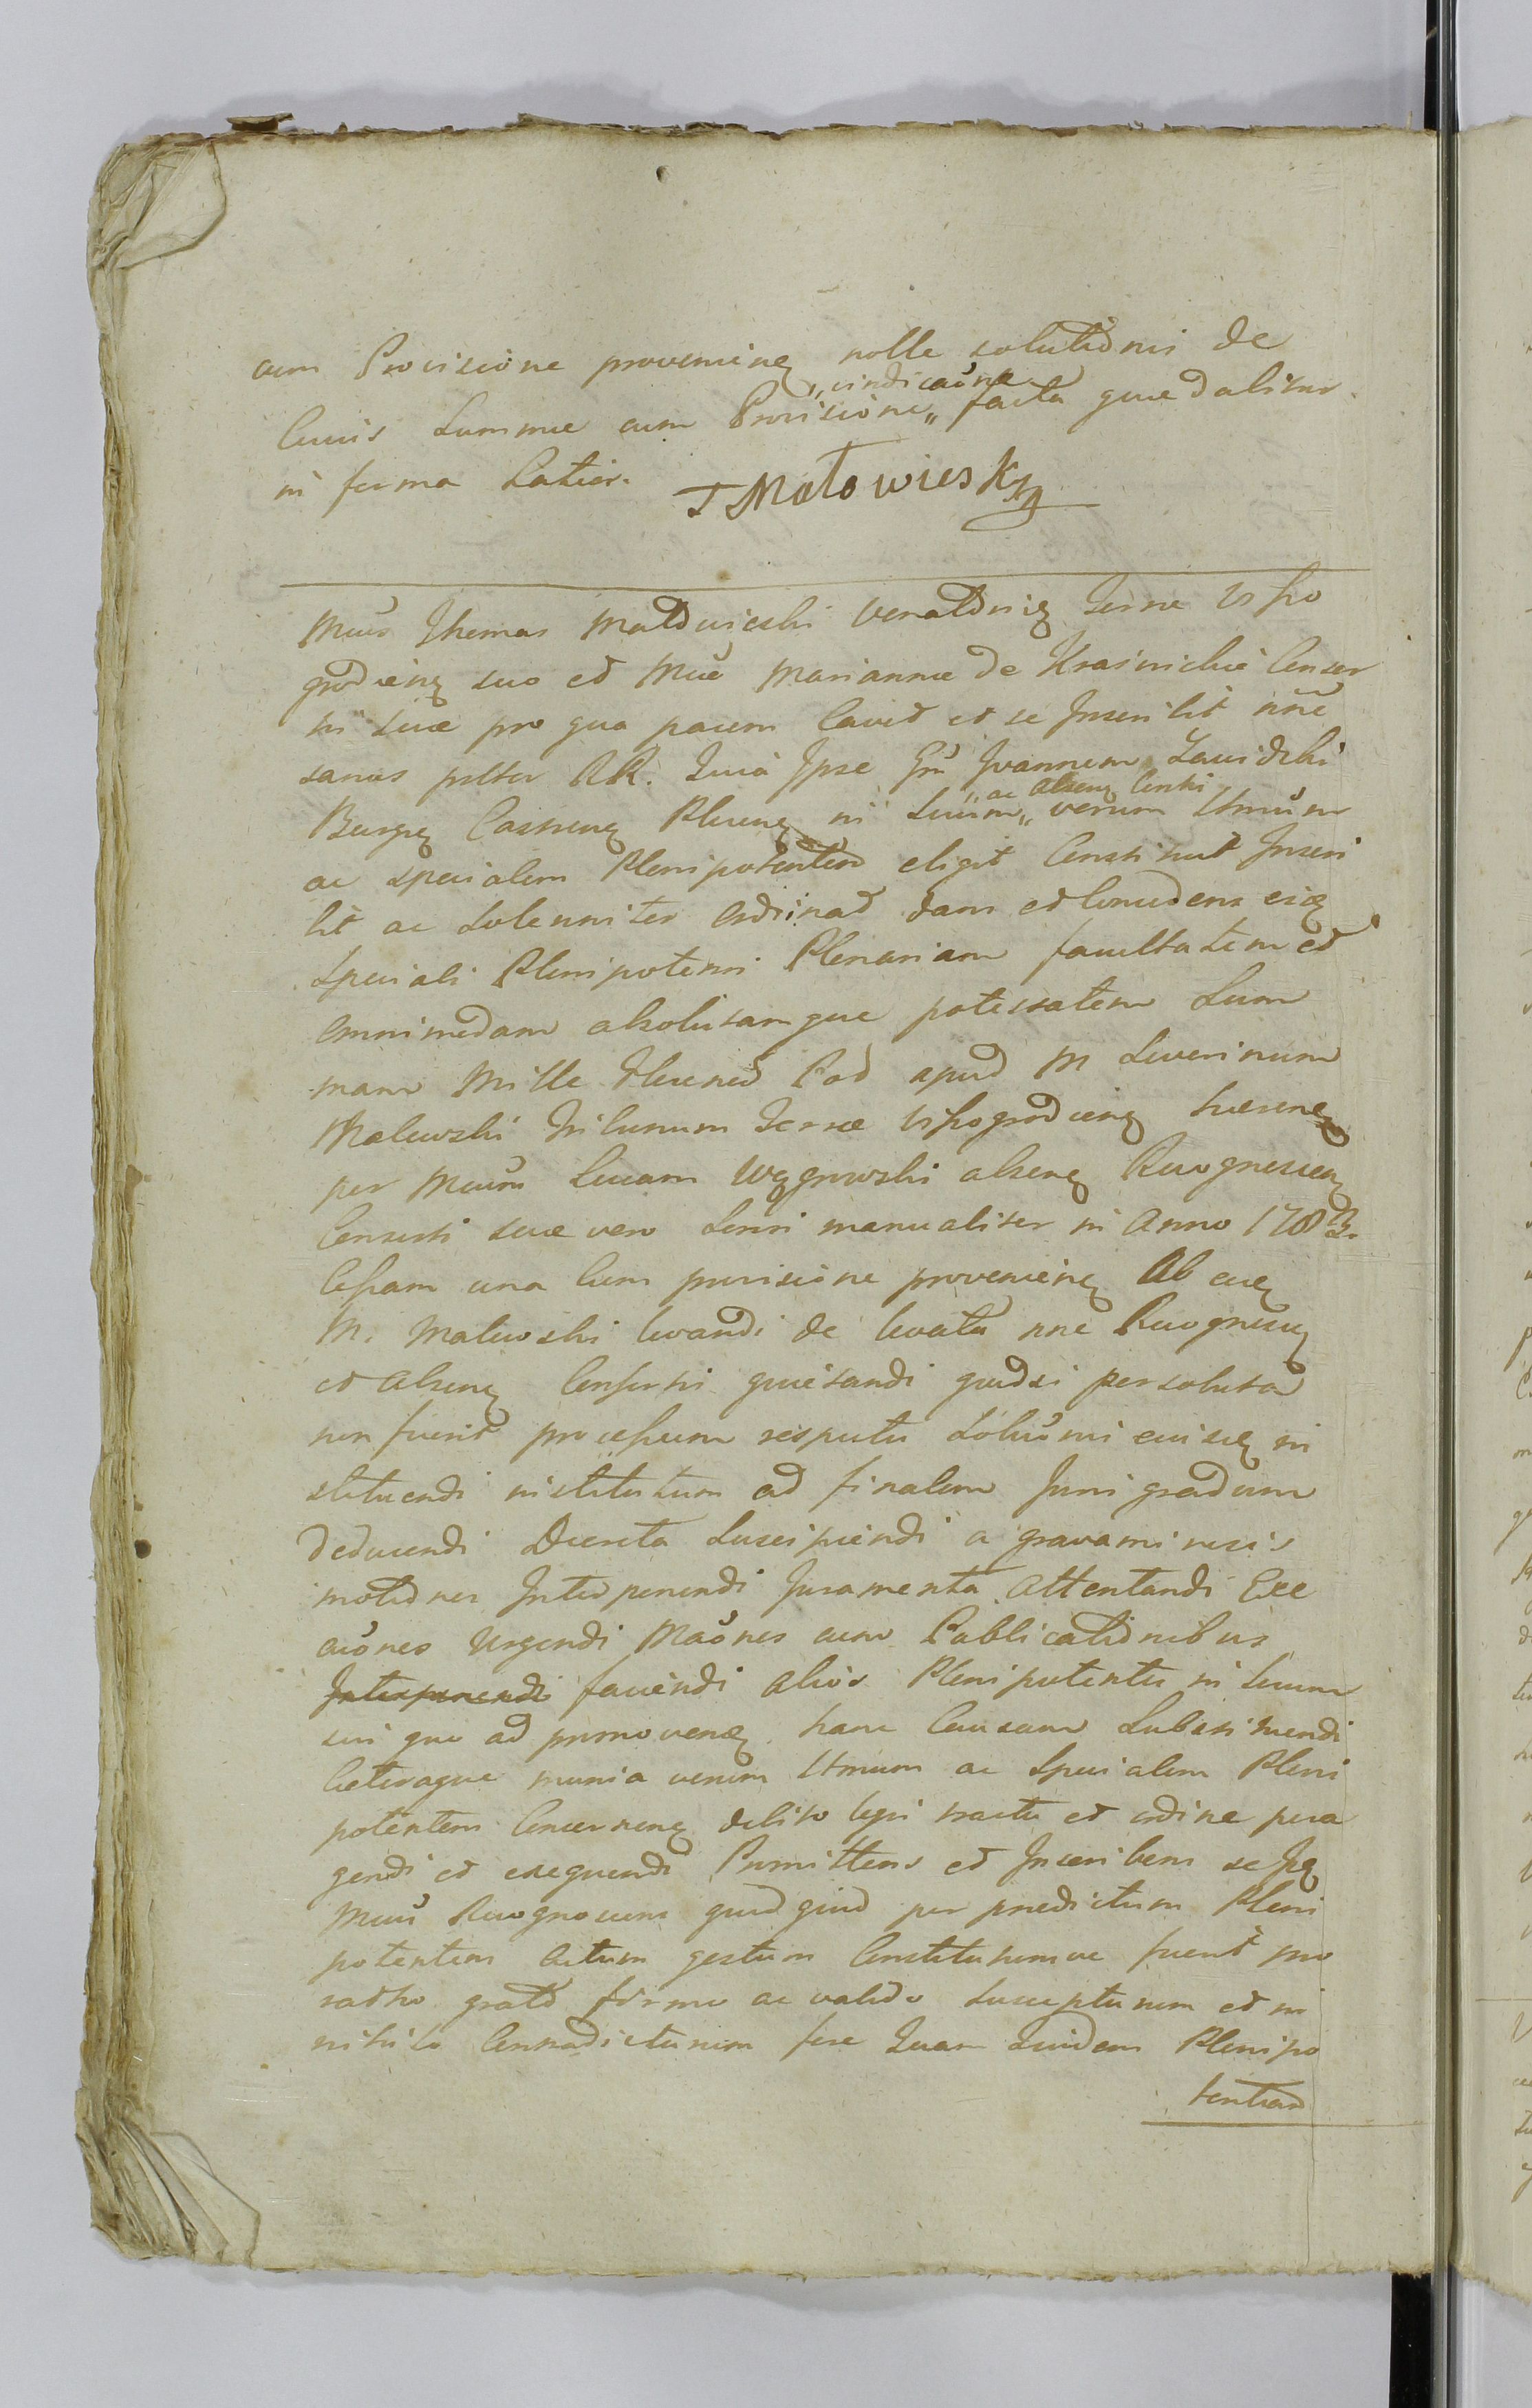 cum Provisione provenieñ nolle solutionis de
cuius Summae cum Provisione „vindicaõne„ facta quiedabitur
in forma Latior. TMałowieski
Mcus Thomas Małowieski Venatoris Terrae Wysso
grodieñ suo et Mcae Mariannae de Krasnickie Conser
tis suae pro qua pacem Cavet et se Inscribit nñe
sanus pstter RR. Quia Ipse Gñ Ivannem Zawidzki
Burgg Castreñ Ploceñ in Suum „ac absentg Consti„ verum Itmum
ac specialem Plenipotentem eligit Constituit Inscri
bit ac Solenniter Ordinat dans et Concedens eidg
Speciali Plenipotenti Plenariam facultatem et
omnimodam absolutamque potestatem Sum
mam Mille Floreno Pol apud M Severinum
Malewski Tribunum Terrae Wyssogrodieñ haereng
per Mcum Lucam Węgrowski abseng Recognoscen
Consorti suae vero Sorori manualiter in Anno 1783.
Cessam una Cum provisione provenieng Ab eod
M. Malewski levandi de levata nne Recognoscg
et Abseng Consortis quietandi quodsi persoluta
non fuerit processum respectu Solutionis eiusdg in
stituendi institutum ad finalem Juris gradum
deducendi Decreta Suscipiendi a gravaminosis
motiones Interponendi Juramenta Attentandi Exe
cuõnes Urgendi Maõnes cum Publicationibus
Interponendi faciendi alios Plenipotentes in locum
sui quo ad promoveng hanc Causam Substituendi
Caeteraque munia verum Itmum ac Specialem Pleni
potentem Concerneng debito legis tractu et ordine pera
gendi et exequendi Promittens et Inscribens se Ipg
Mcus Recognoscens quidquid per praedictum Pleni
potentem Actum gestum Constitutumve fuerit pro
ratho grato firmo ac valido suscepturum et in
nihilo Contradicturum fore Suam Quidem Plenipo
tentiam